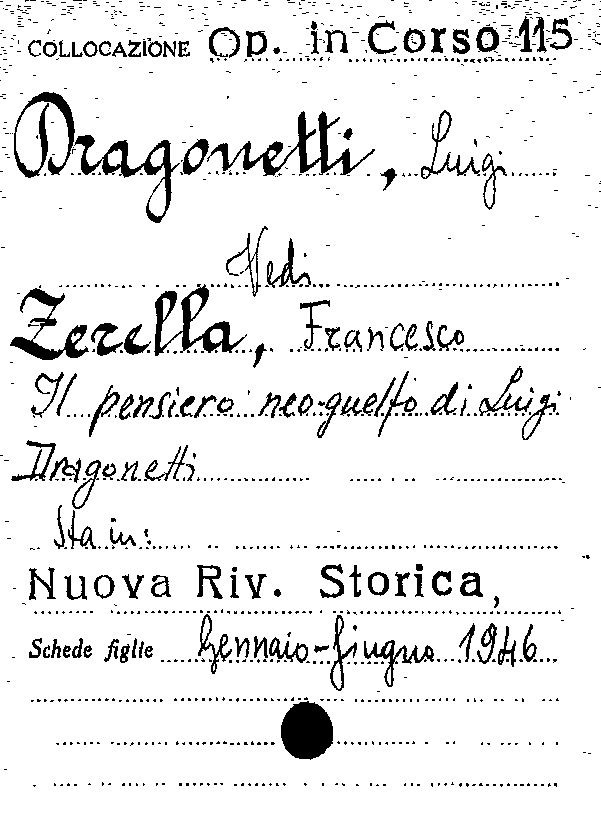 COLLOCAZIONE Op. in Corso 115
Dragonetti, Luigi
Vedi
Zerella, Francesco
Il pensiero neo-guelfo di Luigi
Dragonetti
Sta in:
Nuova Riv. Storica,
Schede figlie Gennaio-Giugno 1946